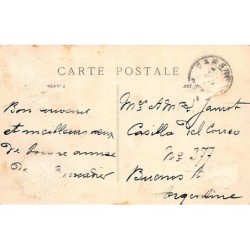 CARTE POSTALE
Bon
et meilleurs vœux
de bonne année
de
Mr & Mme Jamot
Casilla del Correo
No 377
Buenos A
Argentine